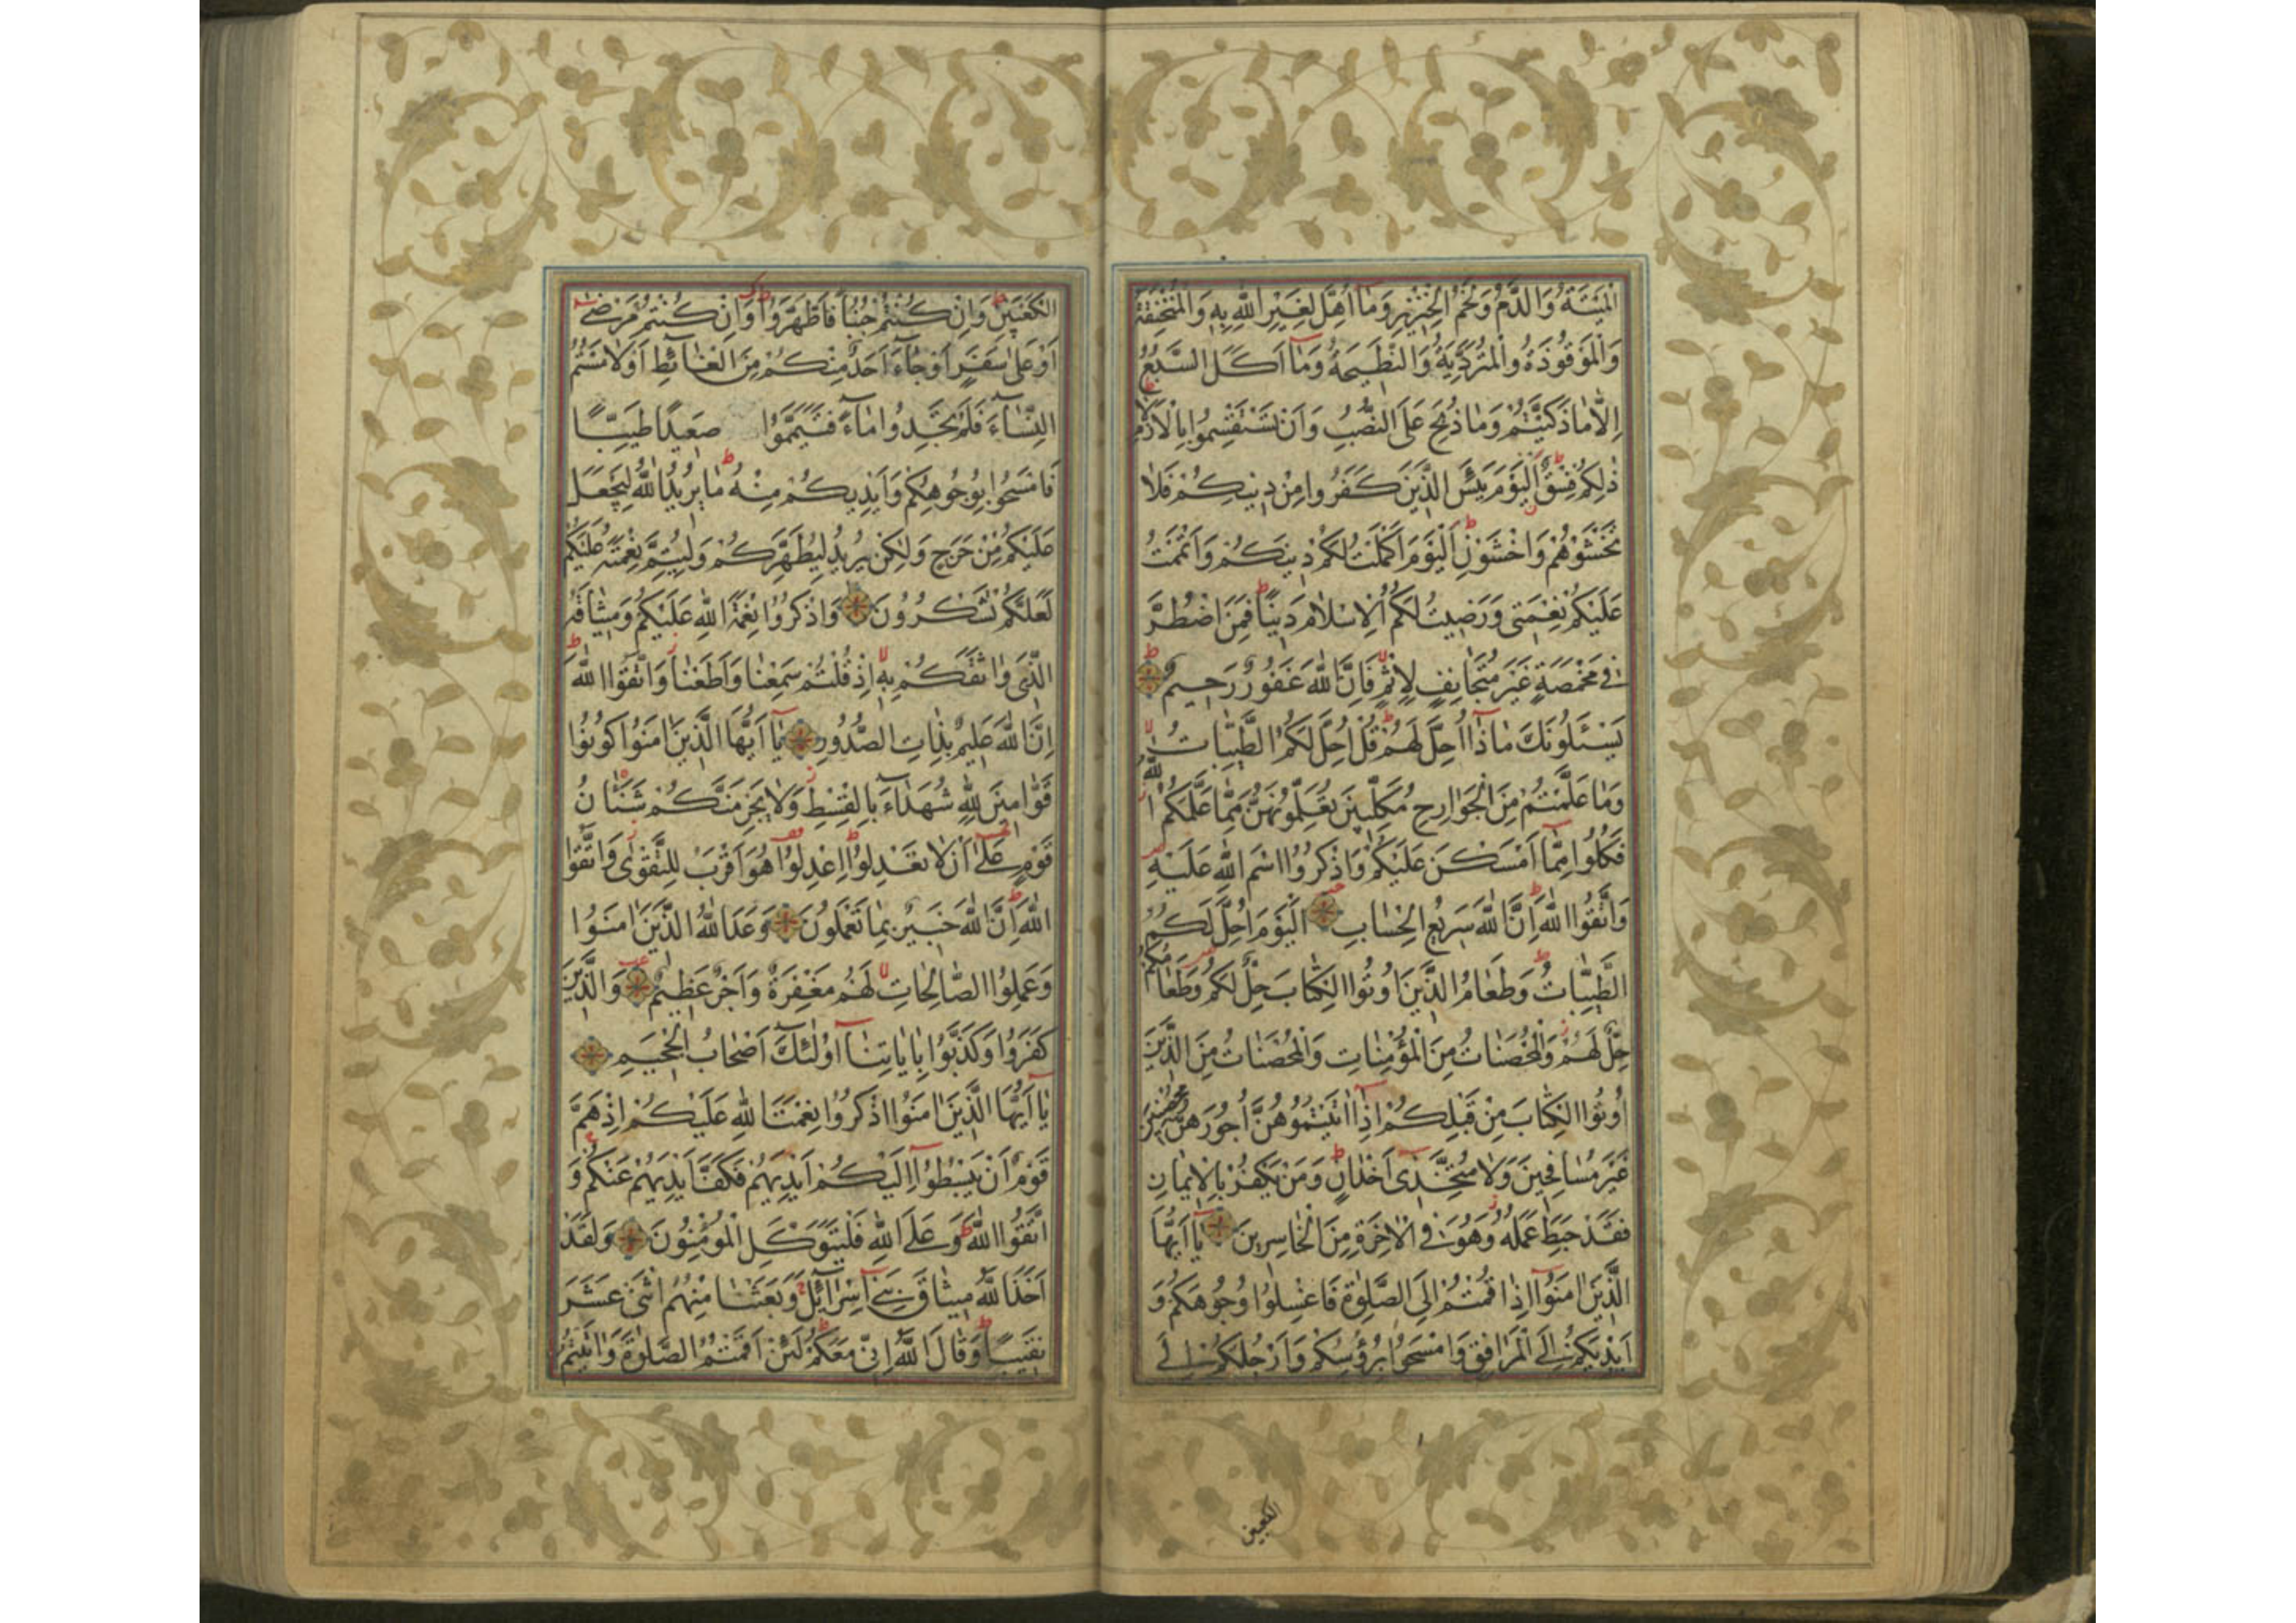 الْمَيْتَةُ وَالدَّمُ وَلَحْمُ الْخِنْزِيرِ وَمَا أُهِلَّ لِغَيْرِ اللّٰهِ بِهِ وَالْمُنْخَنِقَةُ
وَالْمَوْقُوذَةُ وَالْمُتَرَدِّيَةُ وَالنَّطِيحَةُ وَمَا أَكَلَ السَّبُعُ
اِلَّا مَا ذَكَّيْتُمْ وَمَا ذُبِحَ عَلَى النُّصُبِ وَاَنْ تَسْتَقْسِمُوا بِالْاَزْلَامِ
ذٰلِكُمْ فِسْقٌ اَلْيَوْمَ يَئِسَ الَّذِينَ كَفَرُوا مِنْ دِينِكُمْ فَلَا
تَخْشَوْهُمْ وَاخْشَوْنِ اَلْيَوْمَ اَكْمَلْتُ لَكُمْ دِينَكُمْ وَاَتْمَمْتُ
عَلَيْكُمْ نِعْمَتِي وَرَضِيتُ لَكُمُ الْاِسْلَامَ دِينًا فَمَنِ اضْطُرَّ
فِي مَخْمَصَةٍ غَيْرَ مُتَجَانِفٍ لِاِثْمٍ فَاِنَّ اللّٰهَ غَفُورٌ رَحِيمٌ
يَسْئَلُونَكَ مَاذَا اُحِلَّ لَهُمْ قُلْ اُحِلَّ لَكُمُ الطَّيِّبَاتُ
وَمَا عَلَّمْتُمْ مِنَ الْجَوَارِحِ مُكَلِّبِينَ تُعَلِّمُونَهُنَّ مِمَّا عَلَّمَكُمُ اللّٰهُ
فَكُلُوا مِمَّا اَمْسَكْنَ عَلَيْكُمْ وَاذْكُرُوا اسْمَ اللّٰهِ عَلَيْهِ
وَاتَّقُوا اللّٰهَ اِنَّ اللّٰهَ سَرِيعُ الْحِسَابِ اَلْيَوْمَ اُحِلَّ لَكُمُ
الطَّيِّبَاتُ وَطَعَامُ الَّذِينَ اُوتُوا الْكِتَابَ حِلٌّ لَكُمْ وَطَعَامُكُمْ
حِلٌّ لَهُمْ وَالْمُحْصَنَاتُ مِنَ الْمُؤْمِنَاتِ وَالْمُحْصَنَاتُ مِنَ الَّذِينَ
اُوتُوا الْكِتَابَ مِنْ قَبْلِكُمْ اِذَا اٰتَيْتُمُوهُنَّ اُجُورَهُنَّ مُحْصِنِينَ
غَيْرَ مُسَافِحِينَ وَلَا مُتَّخِذِي اَخْدَانٍ وَمَنْ يَكْفُرْ بِالْاِيمَانِ
فَقَدْ حَبِطَ عَمَلُهُ وَهُوَ فِي الْاٰخِرَةِ مِنَ الْخَاسِرِينَ يَا اَيُّهَا
الَّذِينَ اٰمَنُوا اِذَا قُمْتُمْ اِلَى الصَّلٰوةِ فَاغْسِلُوا وُجُوهَكُمْ وَ
اَيْدِيَكُمْ اِلَى الْمَرَافِقِ وَامْسَحُوا بِرُؤُسِكُمْ وَاَرْجُلَكُمْ اِلَى
الكعبين
الْكَعْبَيْنِ وَاِنْ كُنْتُمْ جُنُبًا فَاطَّهَّرُوا وَاِنْ كُنْتُمْ مَرْضٰى
اَوْ عَلٰى سَفَرٍ اَوْ جَاءَ اَحَدٌ مِنْكُمْ مِنَ الْغَائِطِ اَوْ لَامَسْتُمُ
النِّسَاءَ فَلَمْ تَجِدُوا مَاءً فَتَيَمَّمُوا صَعِيدًا طَيِّبًا
فَامْسَحُوا بِوُجُوهِكُمْ وَاَيْدِيكُمْ مِنْهُ مَا يُرِيدُ اللّٰهُ لِيَجْعَلَ
عَلَيْكُمْ مِنْ حَرَجٍ وَلٰكِنْ يُرِيدُ لِيُطَهِّرَكُمْ وَلِيُتِمَّ نِعْمَتَهُ عَلَيْكُمْ
لَعَلَّكُمْ تَشْكُرُونَ وَاذْكُرُوا نِعْمَةَ اللّٰهِ عَلَيْكُمْ وَمِيثَاقَهُ
الَّذِي وَاثَقَكُمْ بِهِ اِذْ قُلْتُمْ سَمِعْنَا وَاَطَعْنَا وَاتَّقُوا اللّٰهَ
اِنَّ اللّٰهَ عَلِيمٌ بِذَاتِ الصُّدُورِ يَا اَيُّهَا الَّذِينَ اٰمَنُوا كُونُوا
قَوَّامِينَ لِلّٰهِ شُهَدَاءَ بِالْقِسْطِ وَلَا يَجْرِمَنَّكُمْ شَنَاٰنُ
قَوْمٍ عَلٰى اَنْ لَا تَعْدِلُوا اِعْدِلُوا هُوَ اَقْرَبُ لِلتَّقْوٰى وَاتَّقُوا
اللّٰهَ اِنَّ اللّٰهَ خَبِيرٌ بِمَا تَعْمَلُونَ وَعَدَ اللّٰهُ الَّذِينَ اٰمَنُوا
وَعَمِلُوا الصَّالِحَاتِ لَهُمْ مَغْفِرَةٌ وَاَجْرٌ عَظِيمٌ وَالَّذِينَ
كَفَرُوا وَكَذَّبُوا بِاٰيَاتِنَا اُولٰئِكَ اَصْحَابُ الْجَحِيمِ
يَا اَيُّهَا الَّذِينَ اٰمَنُوا اذْكُرُوا نِعْمَتَ اللّٰهِ عَلَيْكُمْ اِذْ هَمَّ
قَوْمٌ اَنْ يَبْسُطُوا اِلَيْكُمْ اَيْدِيَهُمْ فَكَفَّ اَيْدِيَهُمْ عَنْكُمْ وَ
اتَّقُوا اللّٰهَ وَعَلَى اللّٰهِ فَلْيَتَوَكَّلِ الْمُؤْمِنُونَ وَلَقَدْ
اَخَذَ اللّٰهُ مِيثَاقَ بَنِي اِسْرَائِيلَ وَبَعَثْنَا مِنْهُمُ اثْنَيْ عَشَرَ
نَقِيبًا وَقَالَ اللّٰهُ اِنِّي مَعَكُمْ لَئِنْ اَقَمْتُمُ الصَّلٰوةَ وَاٰتَيْتُمُ